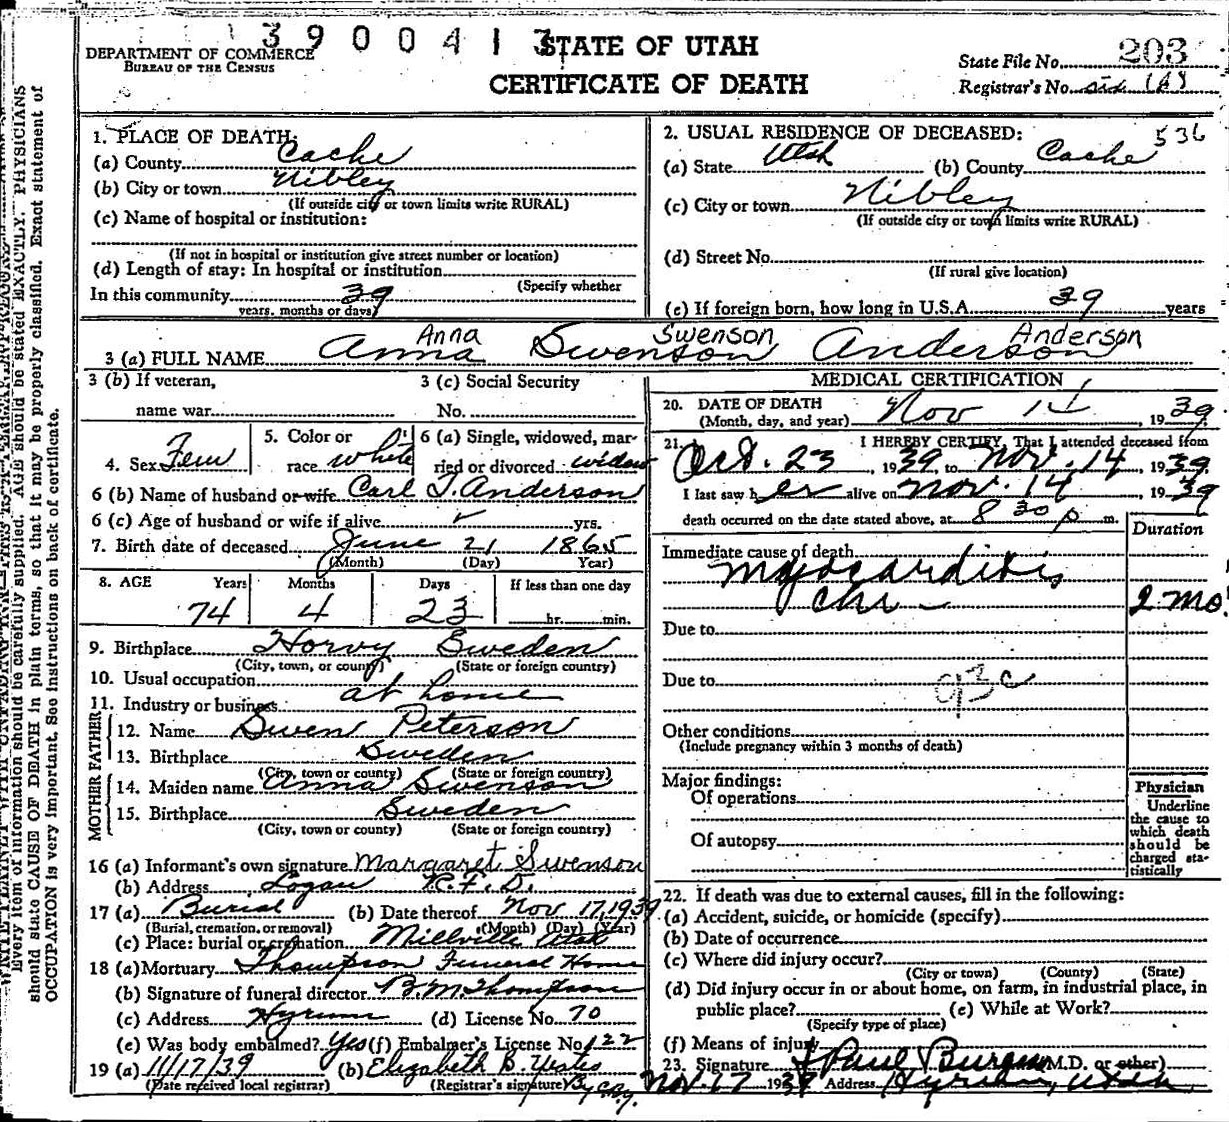 3900413
DEPARTMENT OF COMMERCE
BUREAU OF THE CENSUS
STATE OF UTAH
CERTIFICATE OF DEATH
State File No. 203
Registrar's No. six (6)
Every item of information should be carefully supplied. AGE should be stated EXACTLY. PHYSICIANS
should state CAUSE OF DEATH in plain terms, so that it may be properly classified. Exact statement of
OCCUPATION is very important. See instructions on back of certificate.
1. PLACE OF DEATH:
(a) County Cache
(b) City or town Nibley
(If outside city or town limits write RURAL)
(c) Name of hospital or institution:
(If not in hospital or institution give street number or location)
(d) Length of stay: In hospital or institution
(Specify whether
In this community 39
years, months or days)
2. USUAL RESIDENCE OF DECEASED: 536
(a) State Utah (b) County Cache
(c) City or town Nibley
(If outside city or town limits write RURAL)
(d) Street No.
(If rural give location)
(e) If foreign born, how long in U.S.A. 39 years
Anna Swenson Anderson
3 (a) FULL NAME Anna Swenson Anderson
3 (b) If veteran,
name war
3 (c) Social Security
No.
4. Sex Fem
5. Color or
race white
6 (a) Single, widowed, mar-
ried or divorced widow
6 (b) Name of husband or wife Carl J. Anderson
6 (c) Age of husband or wife if alive yrs.
7. Birth date of deceased June 21 1865
(Month) (Day) Year)
8. AGE Years Months Days If less than one day
74 4 23 hr. min.
9. Birthplace Sweden
(City, town, or county) (State or foreign country)
10. Usual occupation at home
11. Industry or business
FATHER
12. Name Swen Peterson
13. Birthplace Sweden
(City, town or county) (State or foreign country)
MOTHER
14. Maiden name Anna Swenson
15. Birthplace Sweden
(City, town or county) (State or foreign country)
16 (a) Informant's own signature Margaret Swenson
(b) Address Logan R.F.D.
17 (a) Burial (b) Date thereof Nov 17, 1939
(Burial, cremation, or removal) (Month) (Day) (Year)
(c) Place: burial or cremation Millville Utah
18 (a) Mortuary Thompson Funeral Home
(b) Signature of funeral director B.M. Thompson
(c) Address Hyrum (d) License No. 70
(e) Was body embalmed? Yes (f) Embalmer's License No. 122
19 (a) 11/17/39 (b) Elizabeth B. Yeates
(Date received local registrar) (Registrar's signature) By
MEDICAL CERTIFICATION
20. DATE OF DEATH Nov 14, 1939
(Month, day, and year)
21. I HEREBY CERTIFY, That I attended deceased from
Oct. 23, 1939 to Nov. 14, 1939
I last saw her alive on Nov. 14, 1939
death occurred on the date stated above, at 8 30 p m.
Duration
Immediate cause of death
Myocarditis
chr 2 mo.
Due to
Due to 93c
Other conditions
(Include pregnancy within 3 months of death)
Major findings:
Of operations
Of autopsy
Physician
Underline
the cause to
which death
should be
charged sta-
tistically
22. If death was due to external causes, fill in the following:
(a) Accident, suicide, or homicide (specify)
(b) Date of occurrence
(c) Where did injury occur?
(City or town) (County) (State)
(d) Did injury occur in or about home, on farm, in industrial place, in
public place? (e) While at Work?
(Specify type of place)
(f) Means of injury
23. Signature Paul Burgess M.D. or other)
Nov. 17 1939 Address Hyrum, Utah